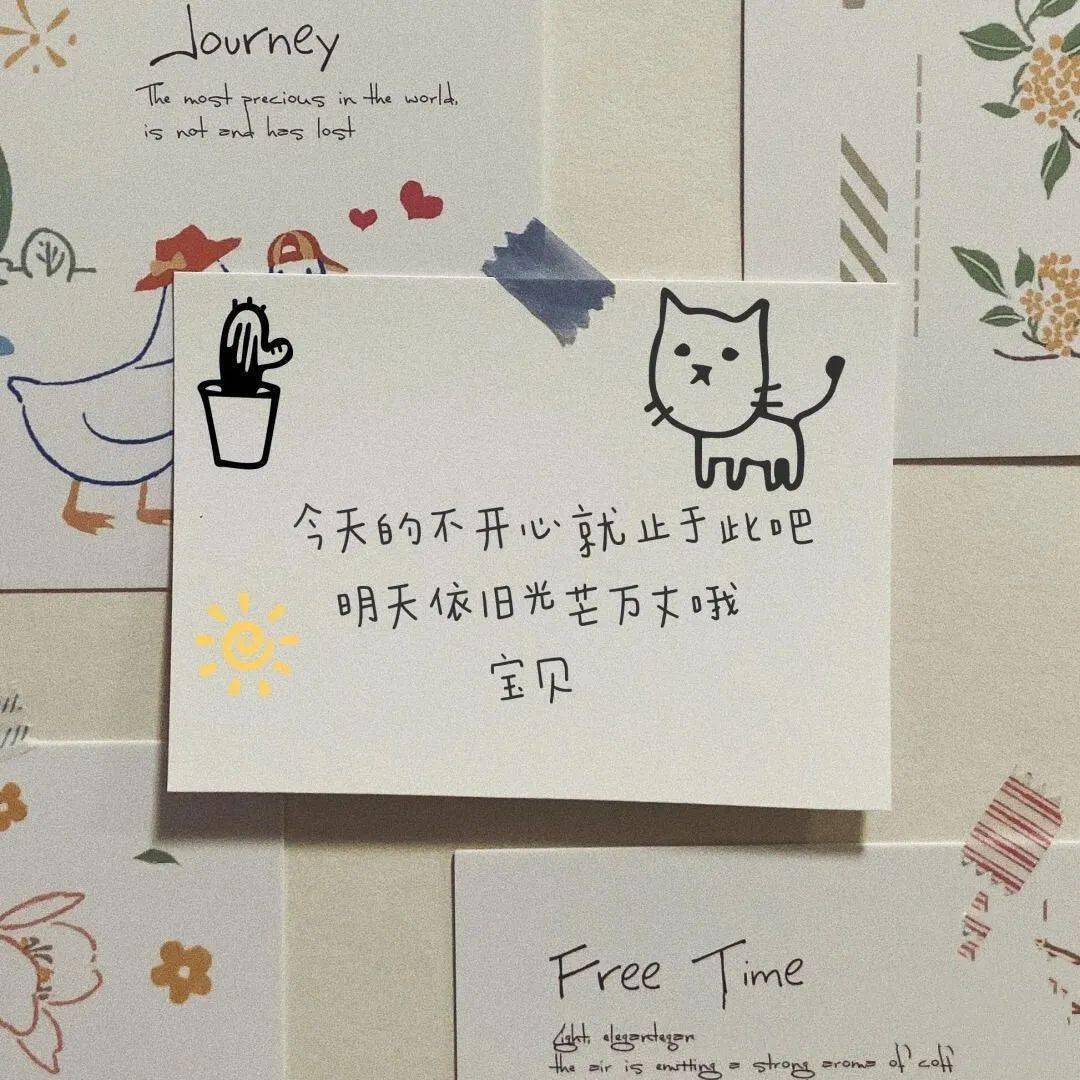 Journey
The most precious in the world,
is not and has lost
今天的不开心就止于此吧
明天依旧光芒万丈哦
宝贝
Free Time
Light, elegantegan
the air is emtting a strong aroma of coff